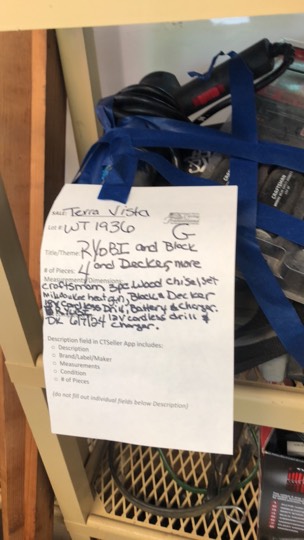 SALE: Terra Vista
Lot # WT 1936
G
Title/Theme: RYOBI and Black
and Decker, more
# of Pieces: 4
Measurements/Dimensions:
craftsman, 3pc wood chisel set
milwaukee heat gun, Black & Decker
18v cordless Drill, Battery & Charger.
12v cordless drill &
charger.
Description field in CTSeller App includes:
o Description
o Brand/Label/Maker
o Measurements
o Condition
o # of Pieces
(do not fill out individual fields below Description)
CRAFTSMAN